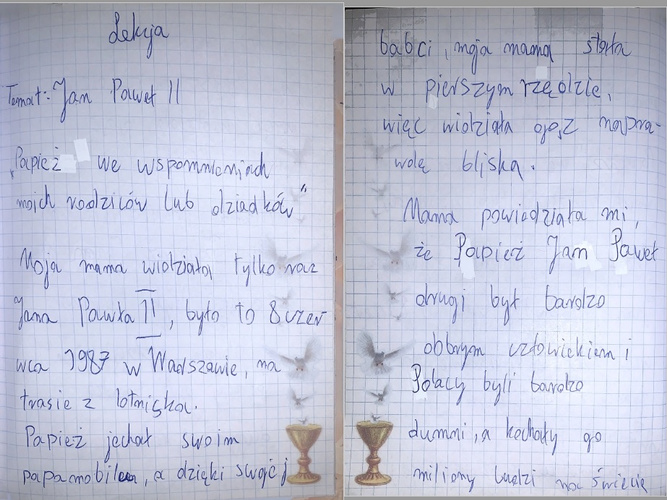 Lekcja
Temat: Jan Paweł II
"Papież we wspomnieniach
moich rodziców lub dziadków"
Moja mama widziała tylko raz
Jana Pawła II, było to 8 czer
wca 1987 w Warszawie, na
trasie z lotniska.
Papież jechał swoim
papamobilem, a dzięki swojej
babci, moja mama stała
w pierwszym rzędzie,
więc widziała go z napra-
wdę bliska.
Mama powiedziała mi,
że Papież Jan Paweł
drugi był bardzo
dobrym człowiekiem i
Polacy byli bardzo
dumni, a kochały go
miliony ludzi na świecie